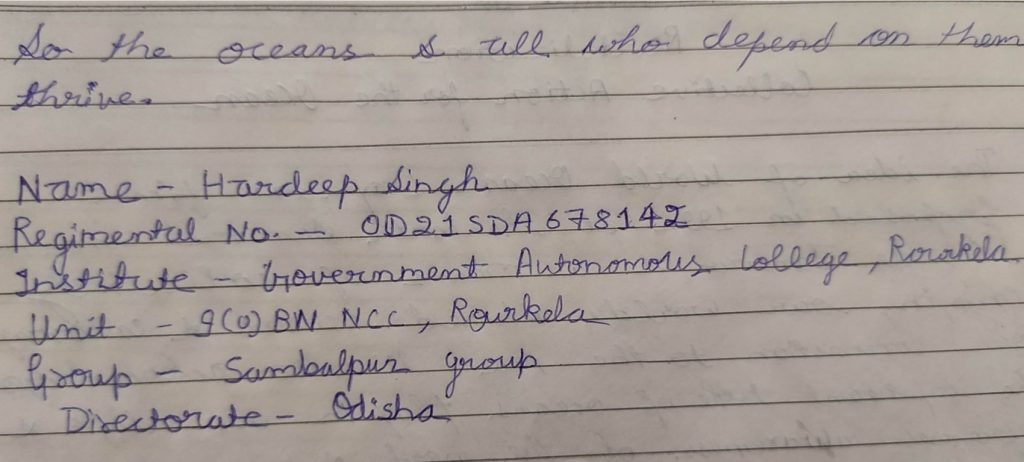 So the oceans & all who depend on them
thrive.
Name - Hardeep Singh
Regimental No. - OD21SDA678142
Institute - Government Autonomous College, Rourkela
Unit - 9(O) BN NCC, Rourkela
Group - Sambalpur group
Directorate - Odisha